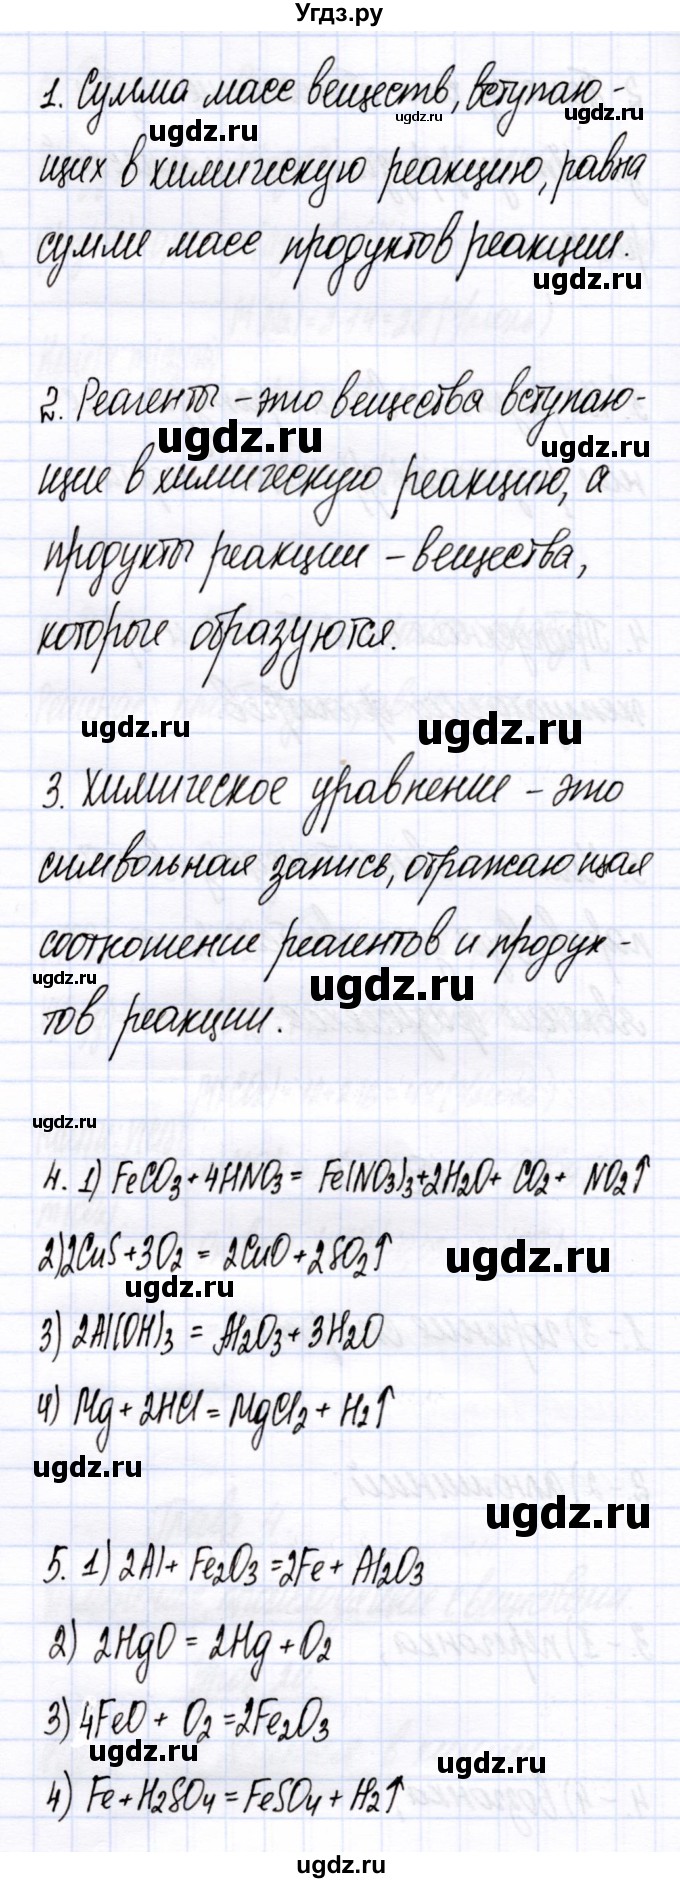 Угдз.ру
1. Сумма масс веществ, вступаю-
ugdz.ru ugdz.ru ugdz.ru
щих в химическую реакцию, равна
сумме масс продуктов реакции.
ugdz.ru
2. Реагенты – это вещества вступаю-
ugdz.ru ugdz.ru
щие в химическую реакцию, а
продукты реакции – вещества,
которые образуются.
ugdz.ru ugdz.ru
3. Химическое уравнение – это
символьная запись, отражающая
соотношение реагентов и продук-
ugdz.ru ugdz.ru
тов реакции.
ugdz.ru
4. 1) FeCO3 + 4HNO3 = Fe(NO3)3 + 2H2O + CO2 + NO2↑
2) 2CuS + 3O2 = 2CuO + 2SO2↑
ugdz.ru ugdz.ru
3) 2Al(OH)3 = Al2O3 + 3H2O
4) Mg + 2HCl = MgCl2 + H2↑
ugdz.ru
ugdz.ru
5. 1) 2Al + Fe2O3 = 2Fe + Al2O3
2) 2HgO = 2Hg + O2
3) 4FeO + O2 = 2Fe2O3
ugdz.ru ugdz.ru
4) Fe + H2SO4 = FeSO4 + H2↑
ugdz.ru